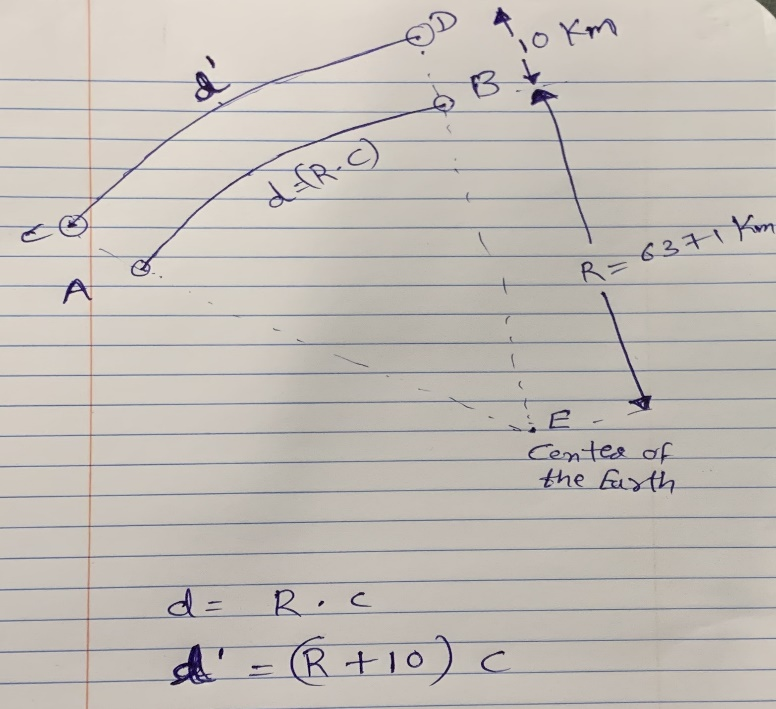 D
10 Km
d'
B
d=(R.C)
C
A
R= 6371 Km
E
Center of
the Earth
d= R. c
d' = (R +10) C